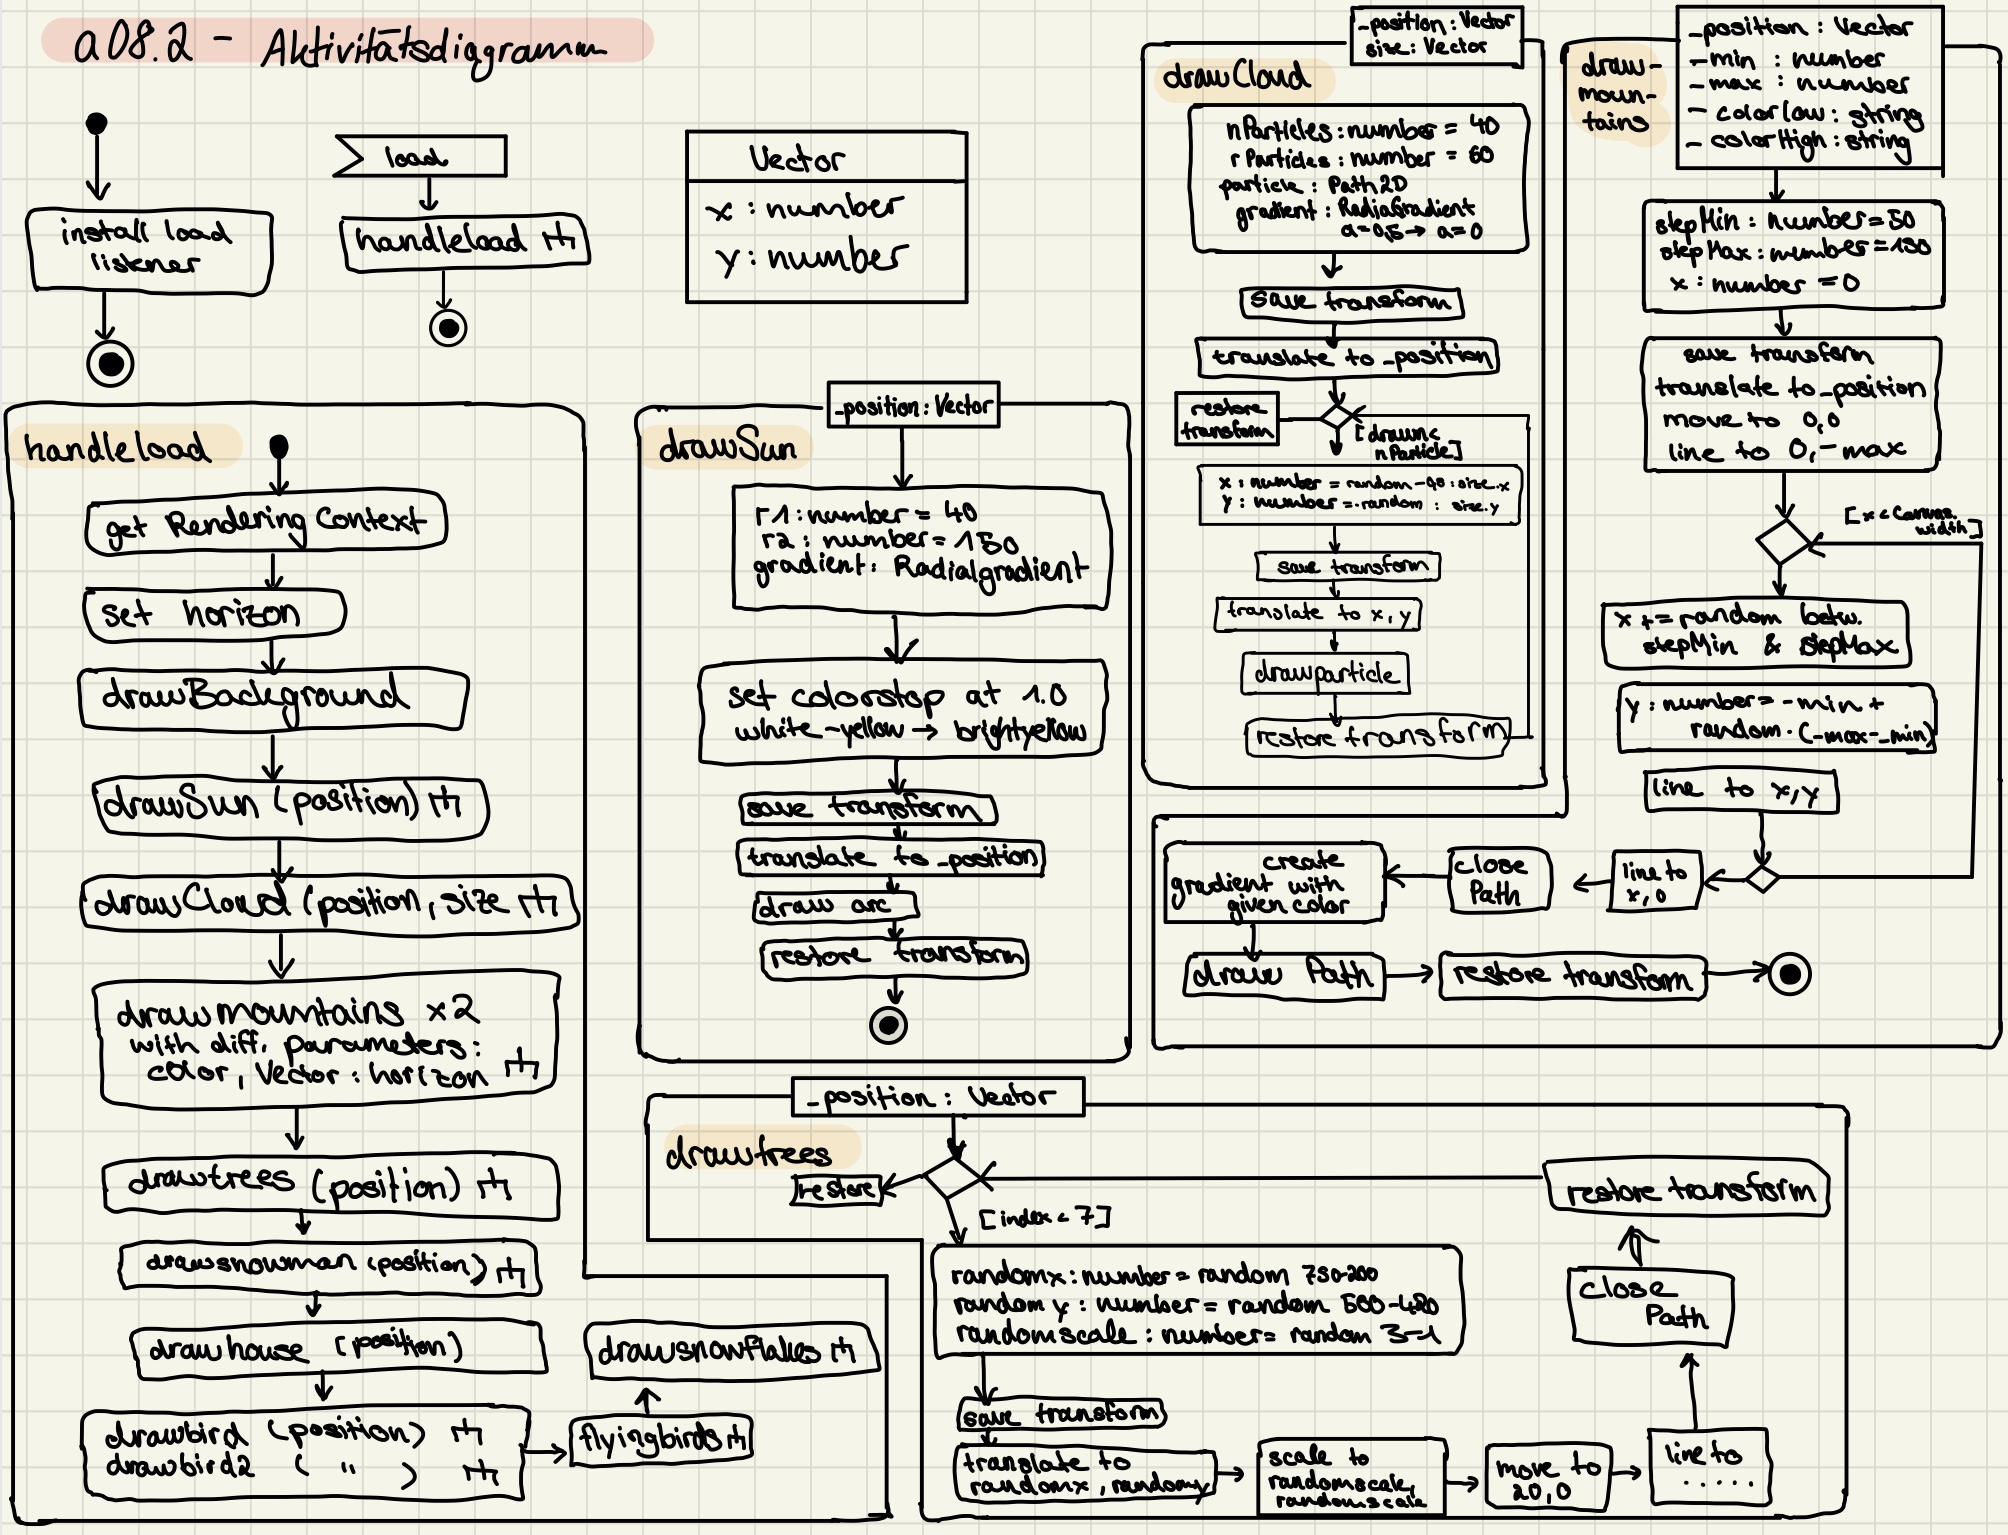 a08.2 - Aktivitätsdiagramm
install load
listener
load
handleload
Vector
x : number
y : number
handleload
get Rendering Context
set horizon
drawBackground
drawSun (position)
drawCloud (position, size
drawmountains x2
with diff. parameters:
color, Vector : horizon
drawtrees (position)
drawsnowman (position)
drawhouse (position)
drawbird (position)
drawbird2 ( " )
flyingbirds
drawsnowflakes
_position : Vector
drawSun
r1 : number = 40
r2 : number = 150
gradient : Radialgradient
set colorstop at 1.0
white-yellow → brightyellow
save transform
translate to _position
draw arc
restore transform
_position : Vector
size : Vector
drawCloud
nParticles : number = 40
rParticles : number = 60
particle : Path2D
gradient : RadiaGradient
a=0,5 → a=0
save transform
translate to _position
restore
transform
[drawn <
nParticle]
x : number = random - 0,5 : size.x
y : number = - random : size.y
save transform
translate to x, y
drawparticle
restore transform
draw-
moun-
tains
_position : Vector
-min : number
-max : number
- colorlow : string
- colorHigh : string
stepMin : number = 50
stepMax : number = 150
x : number = 0
save transform
translate to _position
move to 0,0
line to 0, - max
[x < Canvas.
width]
x += random betw.
stepMin & stepMax
y : number = -min +
random · (-max-_min)
line to x,y
line to
x, 0
close
Path
create
gradient with
given color
draw Path
restore transform
_position : Vector
drawtrees
restore
[index < 7]
randomx : number = random 750-200
random y : number = random 500-420
randomscale : number = random 3-1
save transform
translate to
randomx , randomy
scale to
randomscale,
randomscale
move to
20,0
line to
.....
close
Path
restore transform